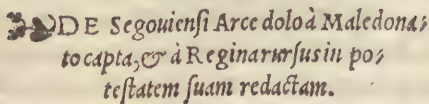 DE Segouiensi Arce dolo à Maledona;
to capta, & à Regina rursus in po;
testatem suam redactam.